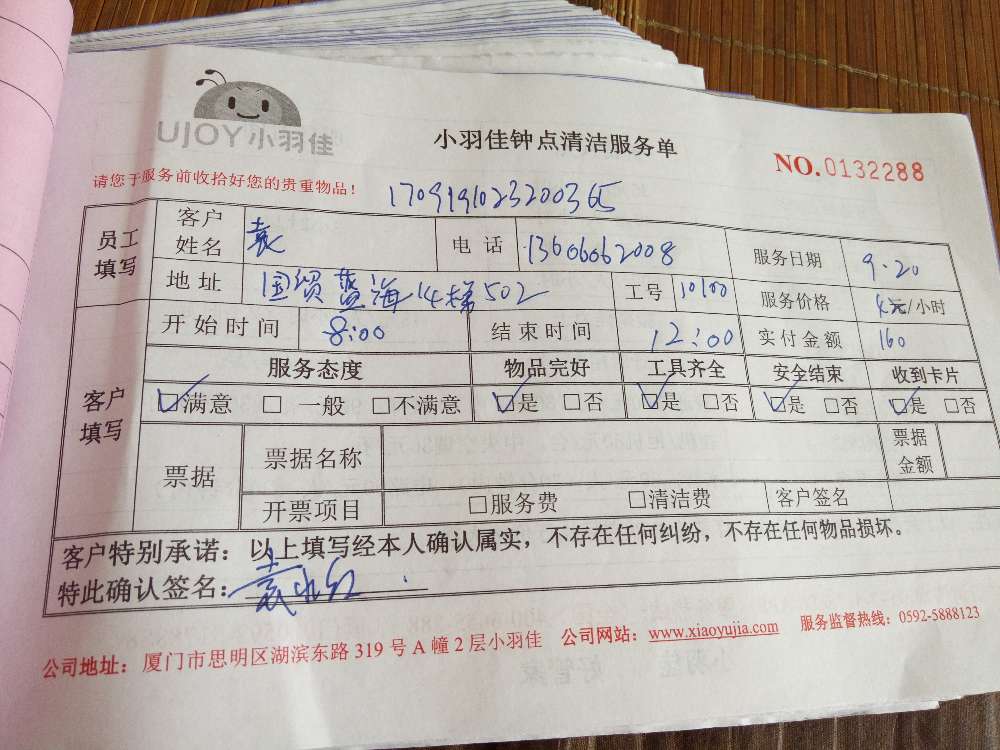 UJOY小羽佳
小羽佳钟点清洁服务单
NO.0132288
请您于服务前收拾好您的贵重物品！
1709191023200365
员工填写 客户姓名 袁 电话 13606062008 服务日期 9.20
地址 国贸蓝海14梯502 工号 10100 服务价格 元/小时
客户填写 开始时间 8:00 结束时间 12:00 实付金额 160
服务态度 物品完好 工具齐全 安全结束 收到卡片
☑满意 □一般 □不满意 ☑是 □否 ☑是 □否 ☑是 □否 ☑是 □否
票据 票据名称 票据金额
开票项目 □服务费 □清洁费 客户签名
客户特别承诺：以上填写经本人确认属实，不存在任何纠纷，不存在任何物品损坏。
特此确认签名：袁
公司地址：厦门市思明区湖滨东路319号A幢2层小羽佳 公司网站：www.xiaoyujia.com 服务监督热线：0592-5888123